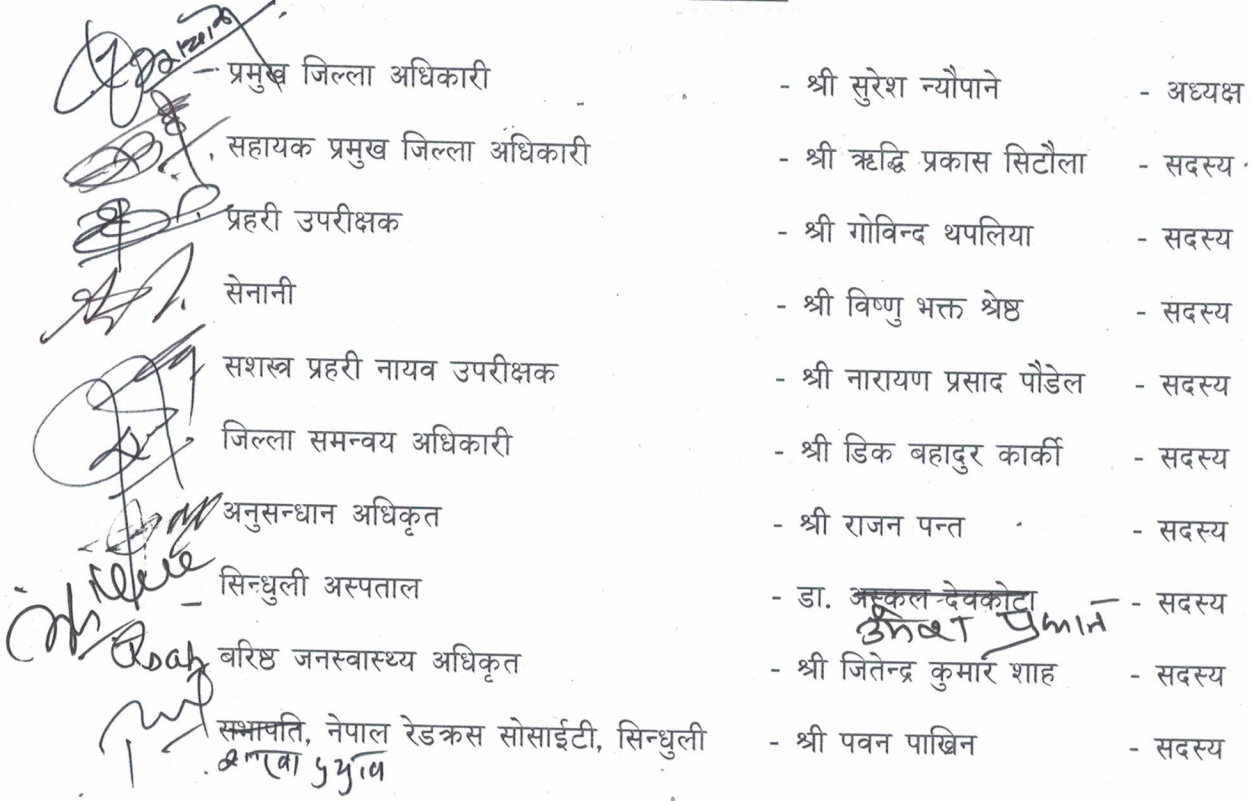 प्रमुख जिल्ला अधिकारी - श्री सुरेश न्यौपाने - अध्यक्ष
सहायक प्रमुख जिल्ला अधिकारी - श्री ऋद्धि प्रकास सिटौला - सदस्य
प्रहरी उपरीक्षक - श्री गोविन्द थपलिया - सदस्य
सेनानी - श्री विष्णु भक्त श्रेष्ठ - सदस्य
सशस्त्र प्रहरी नायव उपरीक्षक - श्री नारायण प्रसाद पौडेल - सदस्य
जिल्ला समन्वय अधिकारी - श्री डिक बहादुर कार्की - सदस्य
अनुसन्धान अधिकृत - श्री राजन पन्त - सदस्य
सिन्धुली अस्पताल - डा. अस्कल देवकोटा - सदस्य
बरिष्ठ जनस्वास्थ्य अधिकृत - श्री जितेन्द्र कुमार शाह - सदस्य
सभापति, नेपाल रेडक्रस सोसाईटी, सिन्धुली - श्री पवन पाखिन - सदस्य